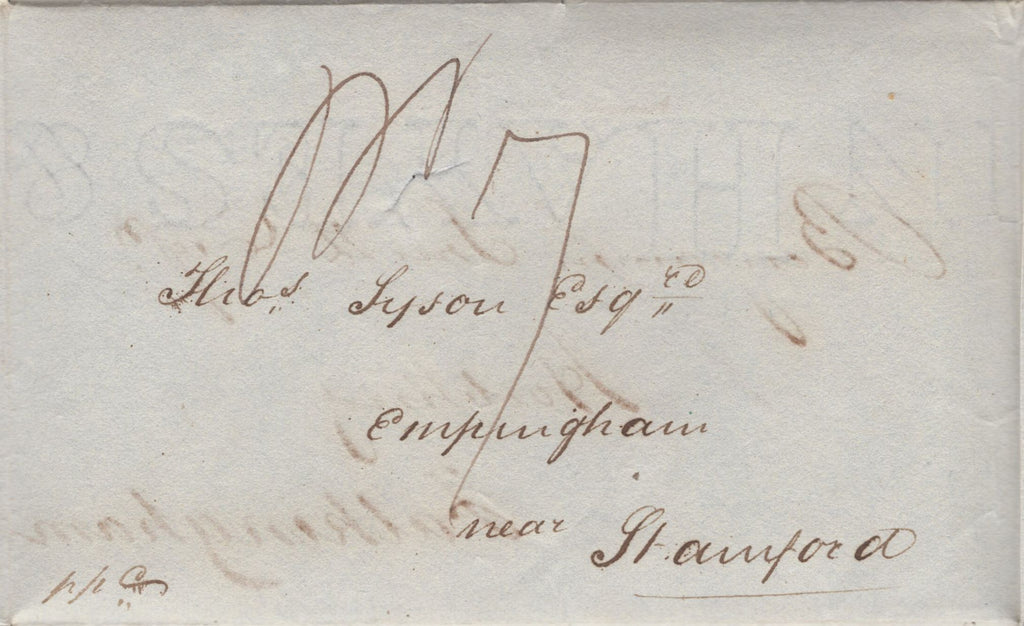 7
Thos. Tyson Esqred
Empingham
near Stamford
ppd